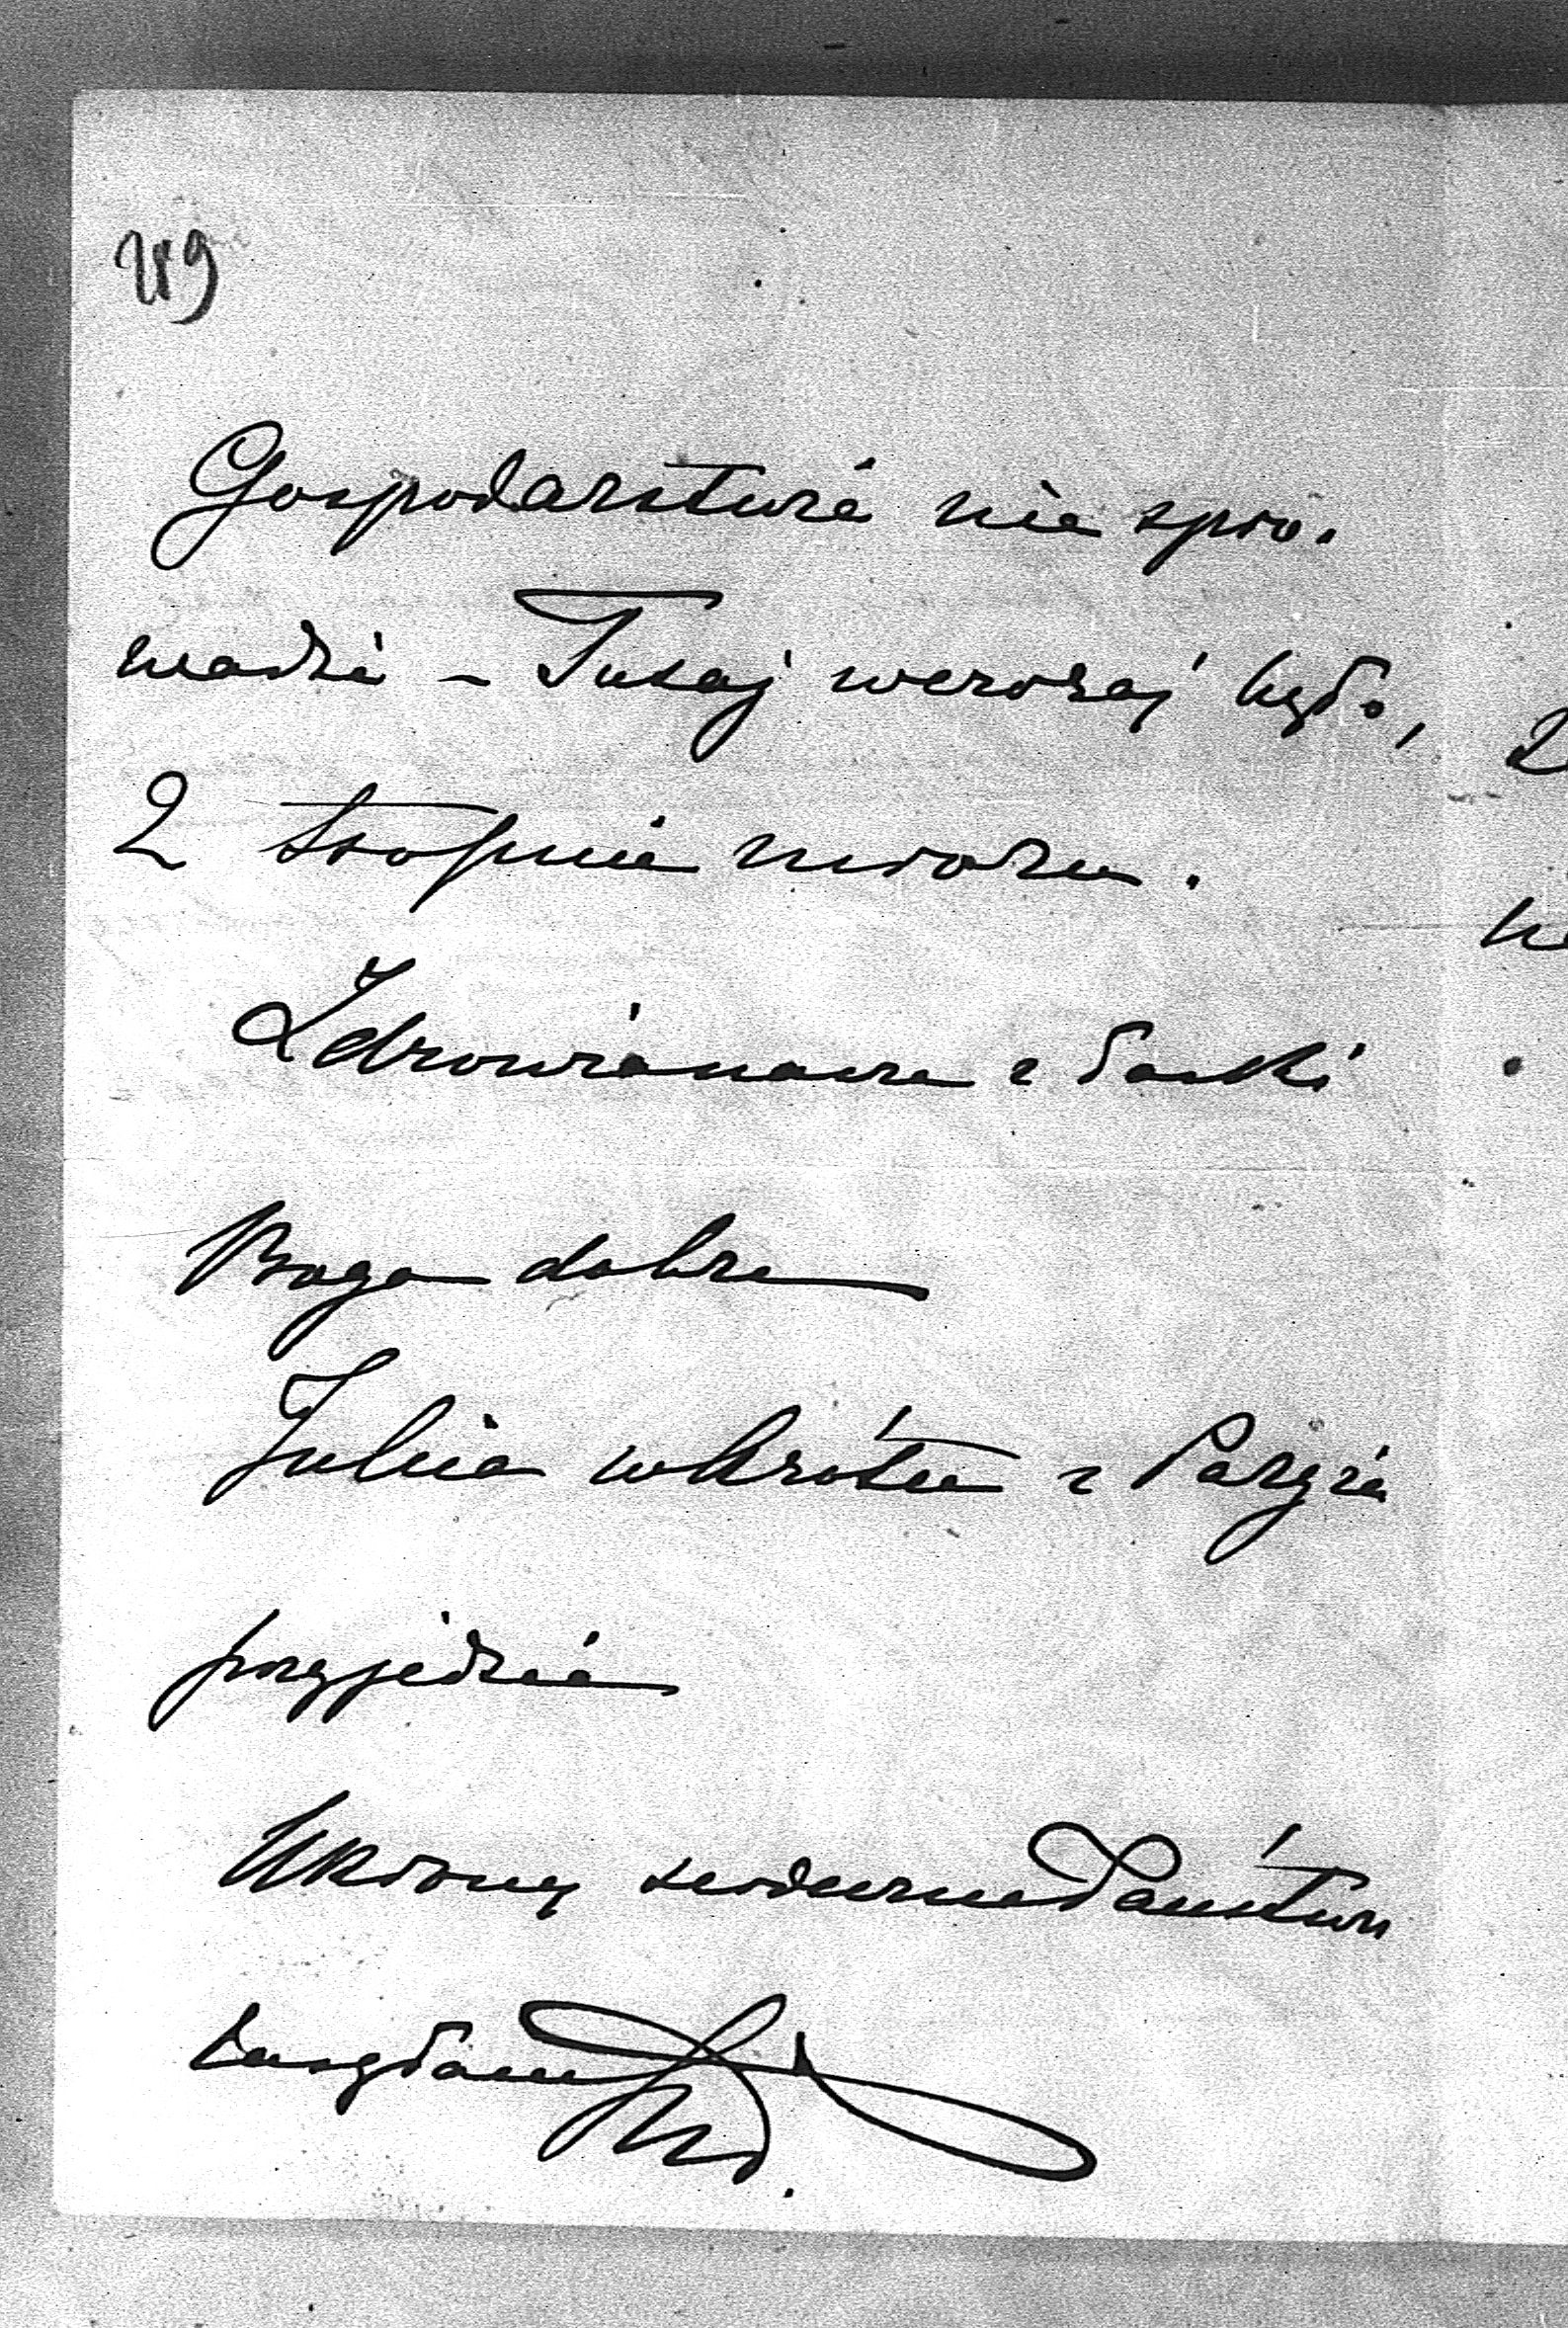 219
Gospodarstwie nie spro-
wadzi – Tutaj wczoraj było,
2 stopnie mrozu.
Zdrowie nasze z łaski
Boga dobre
Julcia wkrótce z Paryża
przyjedzie
Ukłony serdeczne Państwu
zasyłam